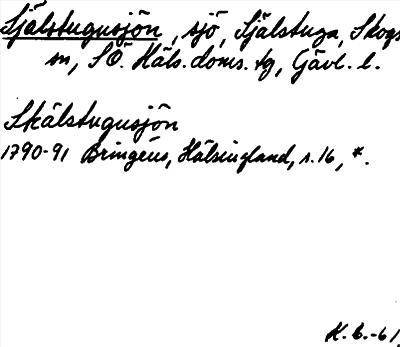 Själstugusjön, sjö, Själstuga, Skogs
sn, SÖ. Häls. doms. tg, Gävl. l.
Skälstugusjön
1790-91 Bringéus, Hälsingland, s. 16, *.
K. L. -61.